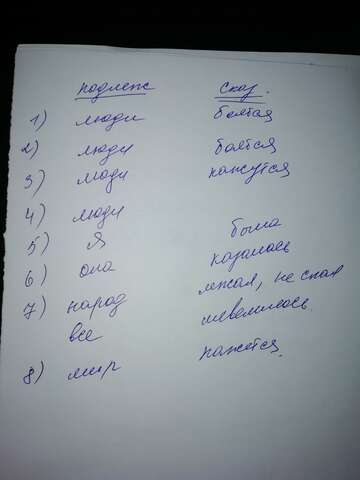 подлеж сказ.
1) люди боятся
2) люди боятся
3) люди кажутся
4) люди
5) я была
6) она казалась
7) народ лежал, не спал
все шевелилось.
8) мир кажется.